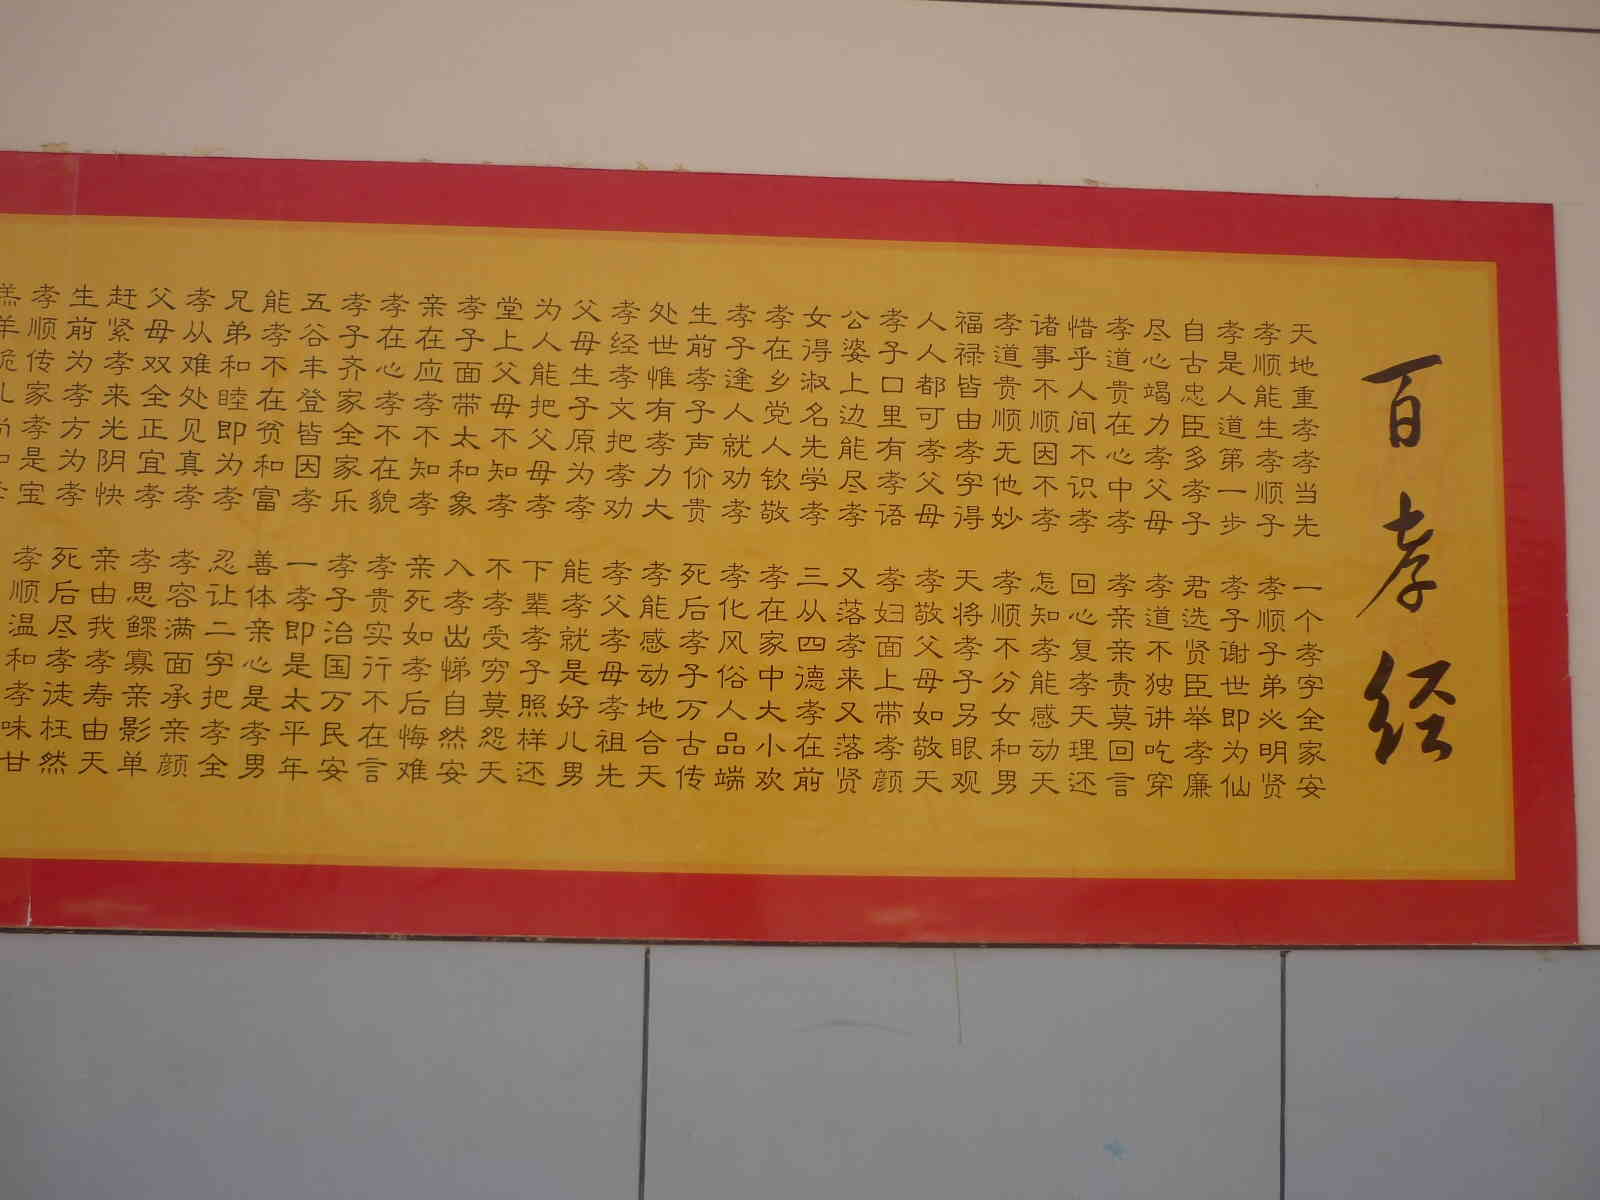 百孝经
天地重孝孝当先
一个孝字全家安
孝顺能生孝顺子
孝顺子弟必明贤
孝是人道第一步
孝子谢世即为仙
自古忠臣多孝子
君选贤臣举孝廉
尽心竭力孝父母
孝道不独讲吃穿
孝道贵在心中孝
孝亲亲责莫回言
惜乎人间不识孝
回心复孝天理还
诸事不顺因不孝
怎知孝能感动天
孝道贵顺无他妙
孝顺不分女和男
福禄皆由孝字得
天将孝子另眼观
人人都可孝父母
孝敬父母如敬天
孝子口里有孝语
孝妇面上带孝颜
公婆上边能尽孝
又落孝来又落贤
女得淑名先学孝
三从四德孝在前
孝在乡党人钦敬
孝在家中大小欢
孝子逢人就劝孝
孝化风俗人品端
生前孝子声价贵
死后孝子万古传
处世惟有孝力大
孝能感动地合天
孝经孝文把孝劝
孝父孝母孝祖先
父母生子原为孝
能孝就是好儿男
为人能把父母孝
下辈孝子照样还
堂上父母不知孝
不孝受穷莫怨天
孝子面带太和象
入孝出悌自然安
亲在应孝不知孝
亲死如孝后悔难
孝在心孝不在貌
孝贵实行不在言
孝子齐家全家乐
孝子治国万民安
五谷丰登皆因孝
一孝即是太平年
能孝不在贫和富
善体亲心是孝男
兄弟和睦即为孝
忍让二字把孝全
孝从难处见真孝
孝容满面承亲颜
父母双全正宜孝
孝思鳏寡亲影单
赶紧孝来光阴快
亲由我孝寿由天
生前为孝方为孝
死后尽孝徒枉然
孝顺传家孝是宝
孝顺温和孝味甘